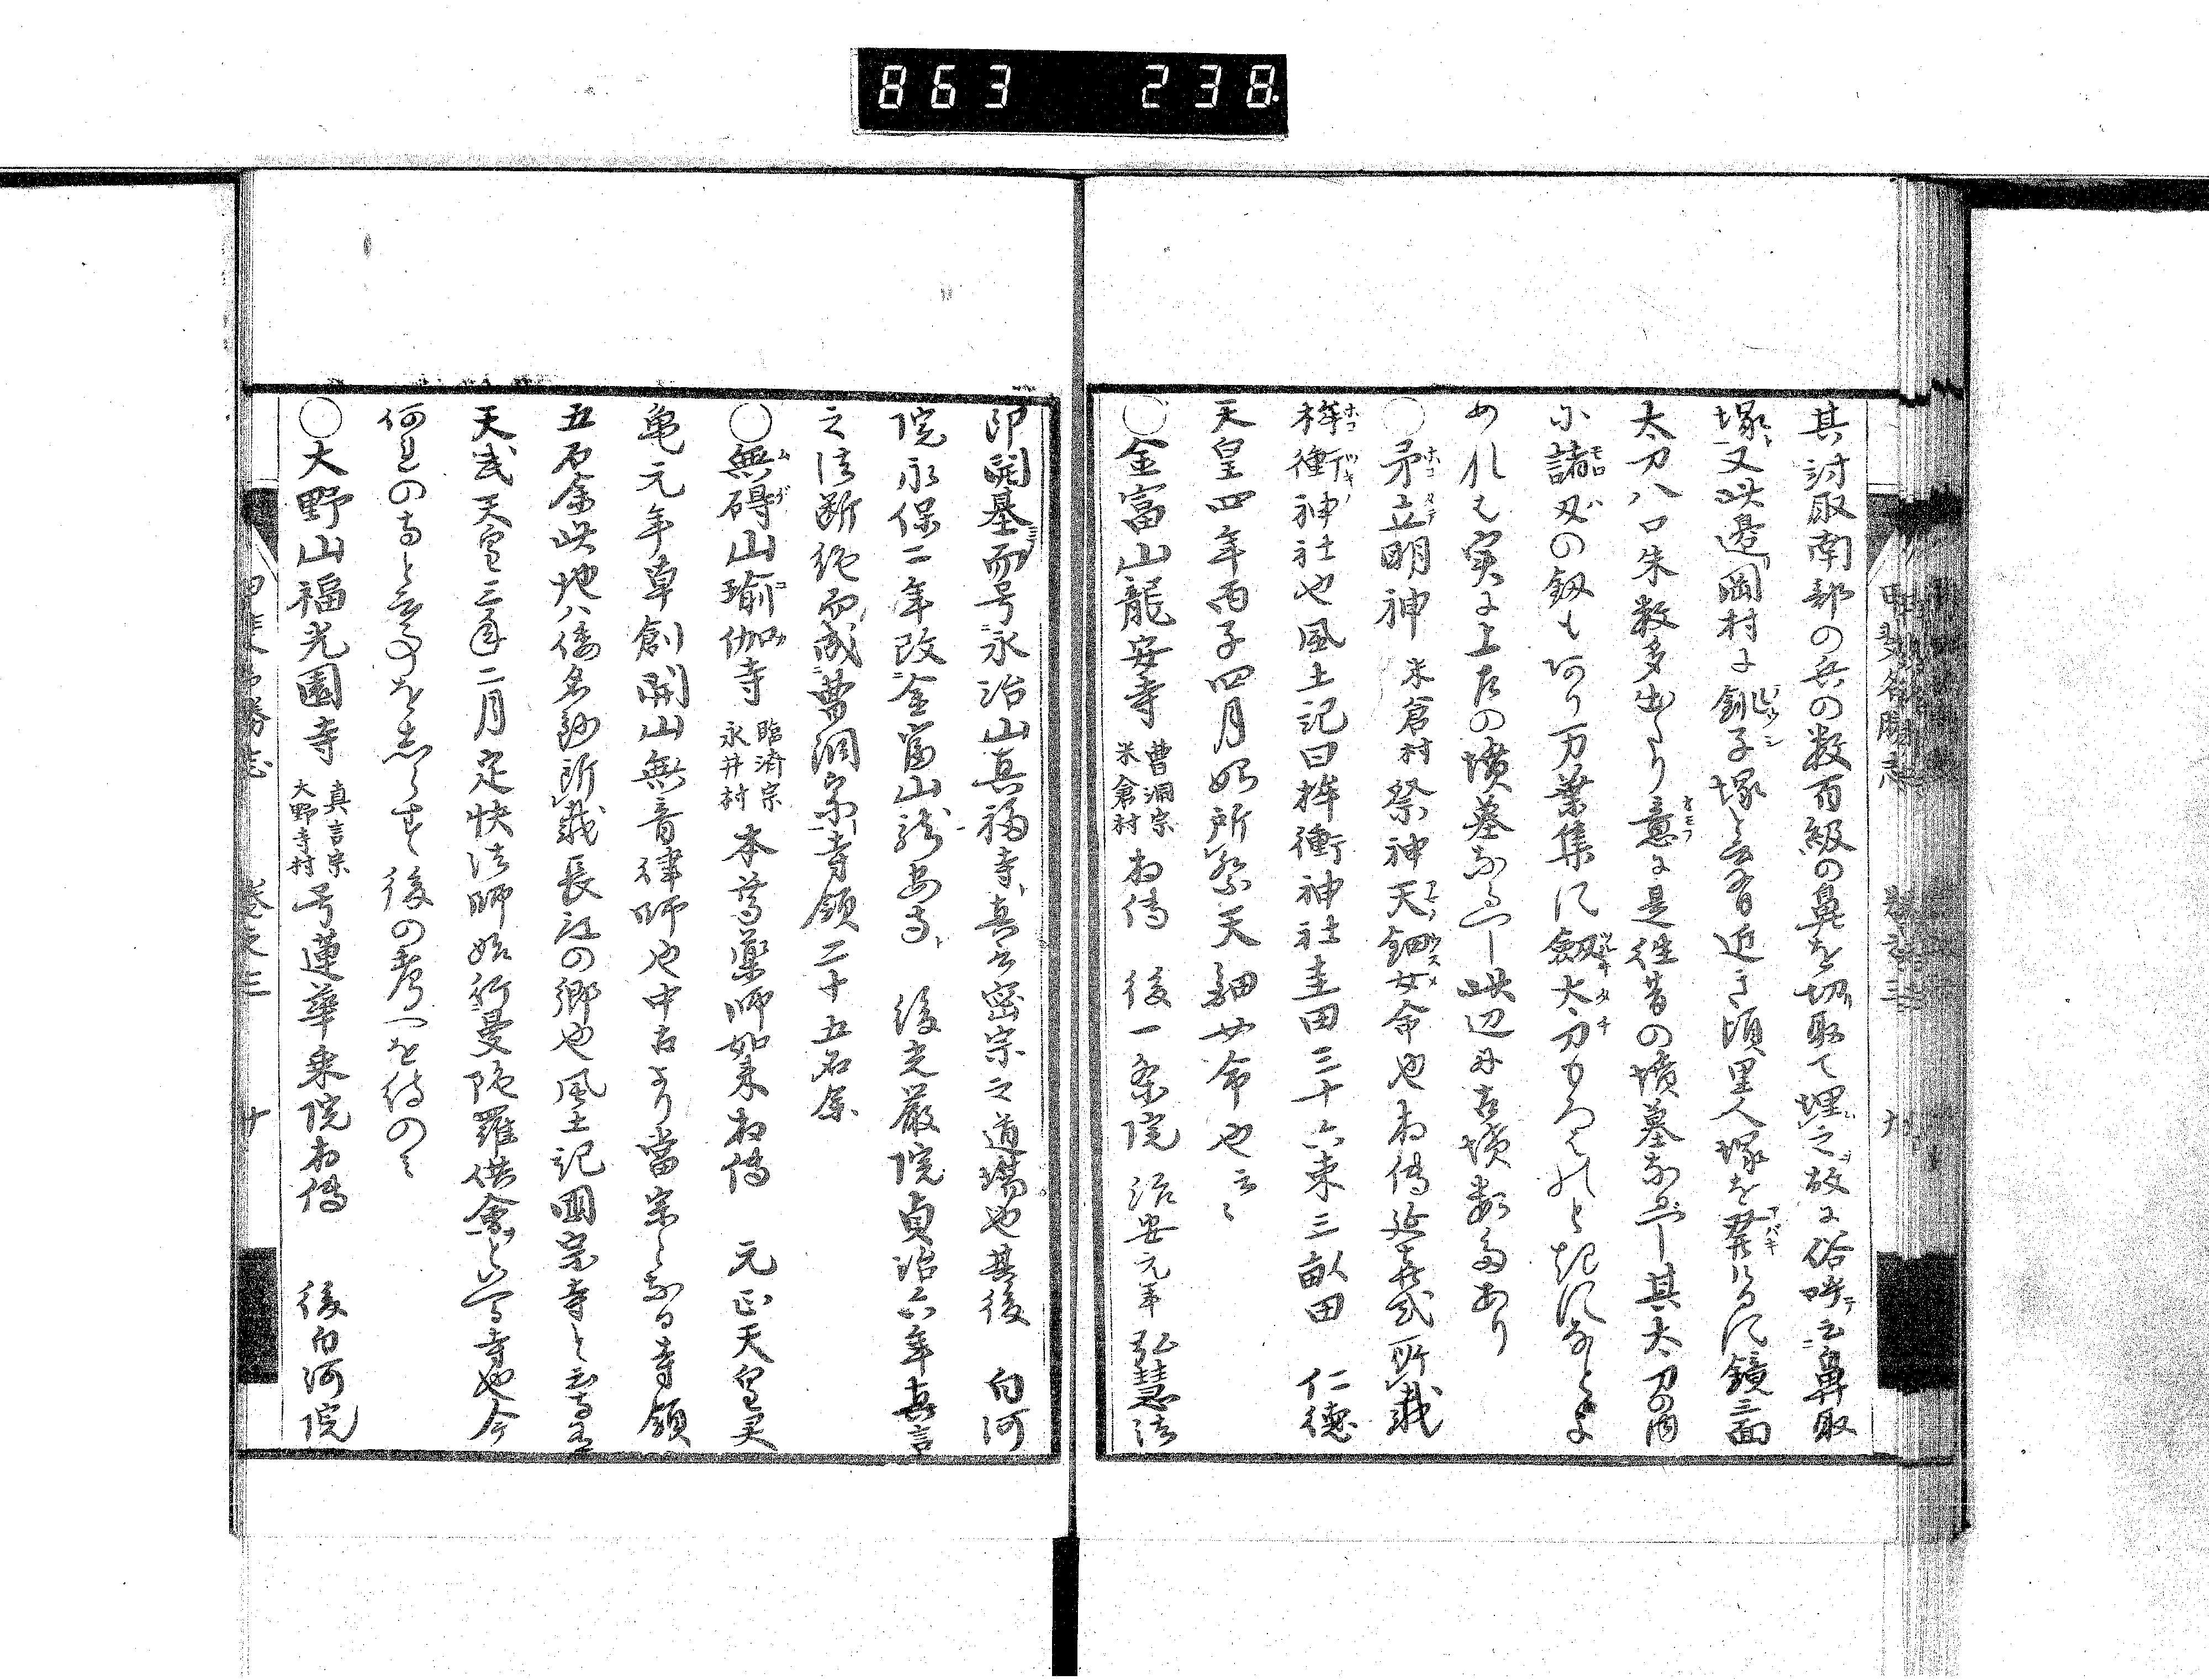 863 238
其討取南部の兵の数百級の鼻を切取て埋之故に俗呼云鼻取
塚又此邊岡村に銚子塚と云有近き頃里人塚を發けるに鏡三面
太刀八口朱数多出たり意に是往昔の墳墓なるべし其太刀の内
小諸刄の釼も あり万葉集に劔太刀もろはのと起になると
あれも実に上古の墳墓なるべし此辺に古墳数多あり
〇矛立明神 米倉村 祭神天鈿女命也相傳延喜式所載
桙衝神社也風土記曰桙衝神社圭田三十六束三畝田 仁徳
天皇四年丙子四月始所祭天鈿女命也云々
〇金富山龍安寺 曹洞宗 米倉村 相傳 後一条院 治安元年 弘慧法
印開基而号永治山真福寺真言密宗之道場也其後 白河
院永保二年改金富山龍安寺 後光嚴院貞治六年真言
之法断絶而成曹洞宗寺領二十五石余
〇無碍山瑜伽寺 臨済宗 永井村 本尊薬師如来相傳 元正天皇灵
亀元年草創開山無音律師也中古より當宗となる寺領
五石余此地ハ倭名鈔所載長江の郷也風土記國宗寺と云
天武天皇三年二月定快法師始行曼陀羅供會といへる寺也今
何れの寺と云事を志らす後の考へを待のミ
〇大野山福光園寺 真言宗 大野寺村 号蓮華乗院相傳 後白河院
甲斐名勝志 巻之三 十